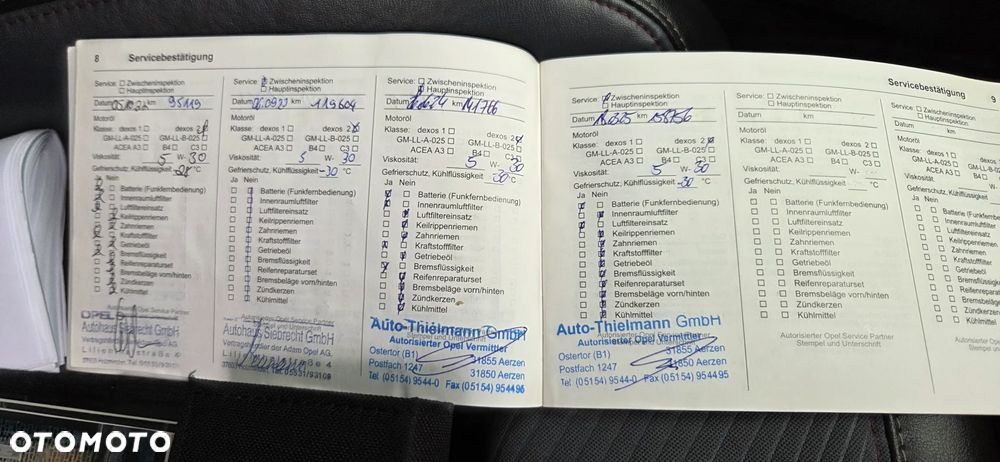 8 Servicebestätigung
Service: Zwischeninspektion
Hauptinspektion
Datum 05.10.22 km 95119
Motoröl
Klasse: dexos 1 dexos 2
GM-LL-A-025 GM-LL-B-025
ACEA A3 B4 C3
Viskosität: 5 W- 30
Gefrierschutz, Kühlflüssigkeit °C
Ja Nein
Batterie (Funkfernbedienung)
Innenraumluftfilter
Luftfiltereinsatz
Keilrippenriemen
Zahnriemen
Kraftstofffilter
Getriebeöl
Bremsflüssigkeit
Reifenreparaturset
Bremsbeläge vorn/hinten
Zündkerzen
Kühlmittel
OPEL Opel Service Partner
Autohaus Siebrecht GmbH
Vertragshändler der Adam Opel AG
Service: Zwischeninspektion
Hauptinspektion
Datum km 119604
Motoröl
Klasse: dexos 1 dexos 2
GM-LL-A-025 GM-LL-B-025
ACEA A3 B4 C3
Viskosität: 5 W- 30
Gefrierschutz, Kühlflüssigkeit -30 °C
Ja Nein
Batterie (Funkfernbedienung)
Innenraumluftfilter
Luftfiltereinsatz
Keilrippenriemen
Zahnriemen
Kraftstofffilter
Getriebeöl
Bremsflüssigkeit
Reifenreparaturset
Bremsbeläge vorn/hinten
Zündkerzen
Kühlmittel
Autorisierter Opel Service Partner
Autohaus Siebrecht GmbH
Vertragshändler der Adam Opel AG
Tel. 05531/93109
Service: Zwischeninspektion
Hauptinspektion
Datum km 141766
Motoröl
Klasse: dexos 1 dexos 2
GM-LL-A-025 GM-LL-B-025
ACEA A3 B4 C3
Viskosität: 5 W- 30
Gefrierschutz, Kühlflüssigkeit -30 °C
Ja Nein
Batterie (Funkfernbedienung)
Innenraumluftfilter
Luftfiltereinsatz
Keilrippenriemen
Zahnriemen
Kraftstofffilter
Getriebeöl
Bremsflüssigkeit
Reifenreparaturset
Bremsbeläge vorn/hinten
Zündkerzen
Kühlmittel
Auto-Thielmann GmbH
Autorisierter Opel Vermittler
Ostertor (B1) 31855 Aerzen
Postfach 1247 31850 Aerzen
Tel (05154) 9544-0 Fax (05154) 954495
Servicebestätigung 9
Service: Zwischeninspektion
Hauptinspektion
Datum km
Motoröl
Klasse: dexos 1 dexos 2
GM-LL-A-025 GM-LL-B-025
ACEA A3 B4 C3
Viskosität: 5 W- 30
Gefrierschutz, Kühlflüssigkeit -30 °C
Ja Nein
Batterie (Funkfernbedienung)
Innenraumluftfilter
Luftfiltereinsatz
Keilrippenriemen
Zahnriemen
Kraftstofffilter
Getriebeöl
Bremsflüssigkeit
Reifenreparaturset
Bremsbeläge vorn/hinten
Zündkerzen
Kühlmittel
Auto-Thielmann GmbH
Autorisierter Opel Vermittler
Ostertor (B1) 31855 Aerzen
Postfach 1247 31850 Aerzen
Tel (05154) 9544-0 Fax (05154) 954495
Service: Zwischeninspektion
Hauptinspektion
Datum km
Motoröl
Klasse: dexos 1 dexos 2
GM-LL-A-025 GM-LL-B-025
ACEA A3 B4 C3
Viskosität: W-
Gefrierschutz, Kühlflüssigkeit °C
Ja Nein
Batterie (Funkfernbedienung)
Innenraumluftfilter
Luftfiltereinsatz
Keilrippenriemen
Zahnriemen
Kraftstofffilter
Getriebeöl
Bremsflüssigkeit
Reifenreparaturset
Bremsbeläge vorn/hinten
Zündkerzen
Kühlmittel
Autorisierter Opel Service Partner
Stempel und Unterschrift
Service: Zwischeninspektion
Hauptinspektion
Datum km
Motoröl
Klasse: dexos 1
GM-LL-A-025
ACEA A3
Viskosität:
Gefrierschutz, Kühlflüssigkeit
Ja Nein
Batterie (Funkfernbedienung)
Innenraumluftfilter
Luftfiltereinsatz
Keilrippenriemen
Zahnriemen
Kraftstofffilter
Getriebeöl
Bremsflüssigkeit
Reifenreparaturset
Bremsbeläge vorn/hinten
Zündkerzen
Kühlmittel
OTOMOTO